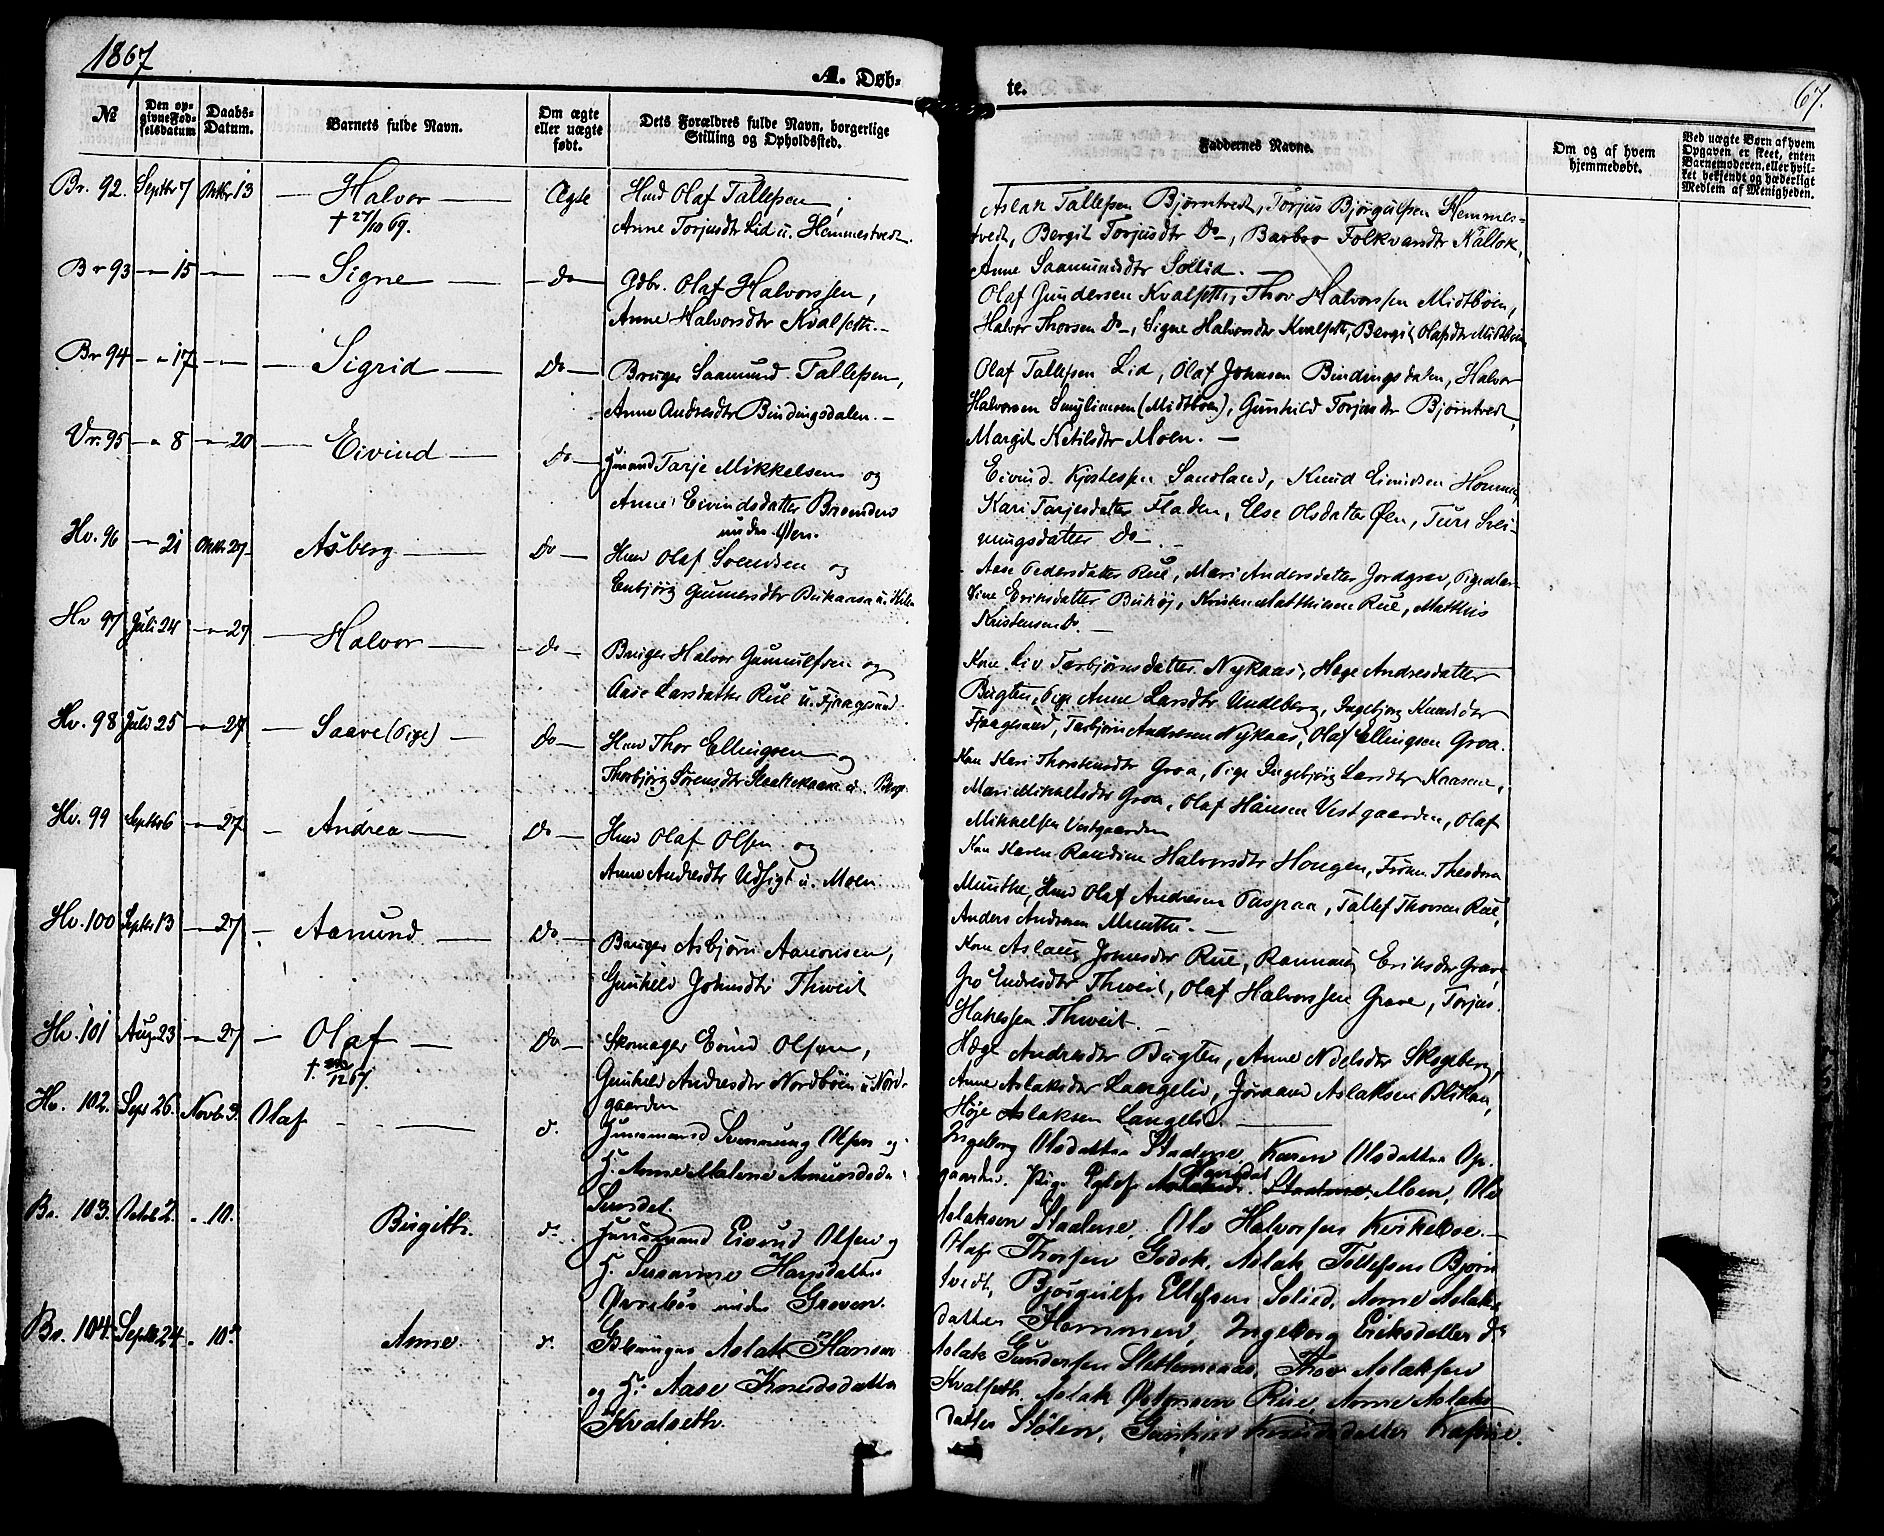 1867
A. Døb-
te.
67.
№
Den op-
givne Fød-
selsdatum
Daabs-
Datum.
Barnets fulde Navn.
Om ægte
eller uægte
født.
Dets Forældres fulde Navn, borgerlige
Stilling og Opholdssted.
Faddernes Navne.
Om og af hvem
hjemmedøbt.
Ved uægte Børn af hvem
Opgaven er skeet, enten
Barnemoderen, eller hvil-
ket bekjendt og hæderligt
Medlem af Menigheden.
Br. 92. Septbr 7 13 Halvor Ægte Husd Olaf Tallefsen,
† 27/10 69. Anne Torjusdtr Lid u. Hemmestvedt.
Aslak Tallefsen Bjørntvedt, Torjus Bjørgulfsen Hemmes-
tvedt, Bergit Torjusdtr Do, Barbro Folkvardtr
Anne Saamundsdtr Sollid.
Br 93 15 Signe Do Gdbr. Olaf Halvorssen,
Anne Halvorsdtr Kvalseth.
Olaf Gundersen Kvalseth, Thor Halvorssen Midtbøen,
Halvor Thorsen Do, Signe Halvorsdtr Kvalseth, Bergit Olafsdtr Midtbøen
Br 94 17 Sigrid Do Bruger Saamund Tallefsen,
Anne Andresdtr Bindingsdalen.
Olaf Tallefsen Lid, Olaf Johnsen Bindingsdalen, Halvor
Halvorsen (Midtbøen), Gunhild Torjusdtr Bjørntvedt,
Margit Ketilsdtr Moen.
Vr. 95 8 20 Eivind Do Tarje Mikkelsen og
Anne Eivindsdatter
under Øen.
Eivind Kjostelsen Sandland, Knud Eivindsen
Kari Tarjesdatter Fladen, Else Olsdatter Øen, Turi Svei-
nungsdatter Do
Hv. 96 21 27 Asberg Do Husd Olaf Svendsen og
Enbjørg Gunnersdtr
Aase Pedersdatter Rue, Mari Andersdatter Jordgrav,
Eriksdatter Bukøj, Matthisen Rue, Matthis
Kristensen Do.
Hv 97 Juli 24 27 Halvor Do Bruger Halvor Gunnulfsen og
Aase Larsdatter Rue u. Fjaagesund
Kone Liv Torbjørnsdatter Nykaas, Hæge Andresdatter
Bugten, Pige Anne Larsdtr Undeberg, Ingebjørg Knudsdtr
Fjaagesund, Torbjørn Andresen Nykaas, Olaf Ellingsen Groa.
Hv. 98 Juli 25 27 Saave (Pige) Do Husd Thor Ellingsen og
Thorbjørg Sørensdtr u. Berge
Kone Kari Thorsteinsdtr Groa, Pige Ingebjørg Larsdtr Kaasene,
Mari Mikkelsdtr Groa, Olaf Hansen Vestgaarden, Olaf
Mikkelsen Vestgaarden
Hv. 99 Septbr 6 27 Andrea Do Husd Olaf Olsen og
Anne Andresdtr Udsigt u. Moen
Kone Karen Randine Halvorsdtr Hougen, Frøken Theodora
Munthe, Husd Olaf Andresen Taspraa, Tallef Thorsen Rue,
Anders Andresen Munthe.
Hv. 100 Septbr 13 27 Aamund Do Bruger Asbjørn Aanonsen,
Gunhild Johnsdtr Thveit
Kone Aslaug Johnsdtr Rue, Rannaug Eriksdtr Grave
Gro Endresdtr Thveit, Olaf Halvorssen Grave, Torjus
Thveit.
Hv. 101 Aug 23 27 Olaf Do Skomager Eivind Olsen,
† 12 67. Gunhild Andresdtr Nordbøen u. Nord-
gaarden
Hæge Andresdtr Bugten, Anne Nielsdtr Skogeberg,
Anne Aslaksdtr Langelid, Jøraand Aslaksen Blikan,
Høje Aslaksen Langelid.
Hv. 102. Sept 26. Novb 3. Olaf d. Huusmand Svennung Olsen og
H. Anne Malene Amundsda
Sundet.
Ingeborg Olsdatter Stadene, Karen Olsdatter Op-
gaarden, Pige Hansdat Moen, Ole
Aslaksen Stadene, Ole Halvorsen Kirkebøe.
Br. 103. Octob 2. 10. Birgithe. d. Huusmand Eivind Olsen og
H. Susanne Hansdatter
under Graven.
Olaf Thorsen Godek, Aslak Tollefsen Bjørn
tvedt, Bjørgulf Ellefsen Solied, Anne Aslaks-
datter Hommen, Ingeborg Eriksdatter do
Br. 104. Septbr 24 10. Anne d. Gbruger Aslak Hansen
og H. Aase Knudsdatter
Kvalseth.
Aslak Gundersen Slettemeaas, Thov Aslaksen
Kvalseth, Aslak Petersen Rue, Anne Aslaks
datter Stølen, Gunhild Knudsdatter